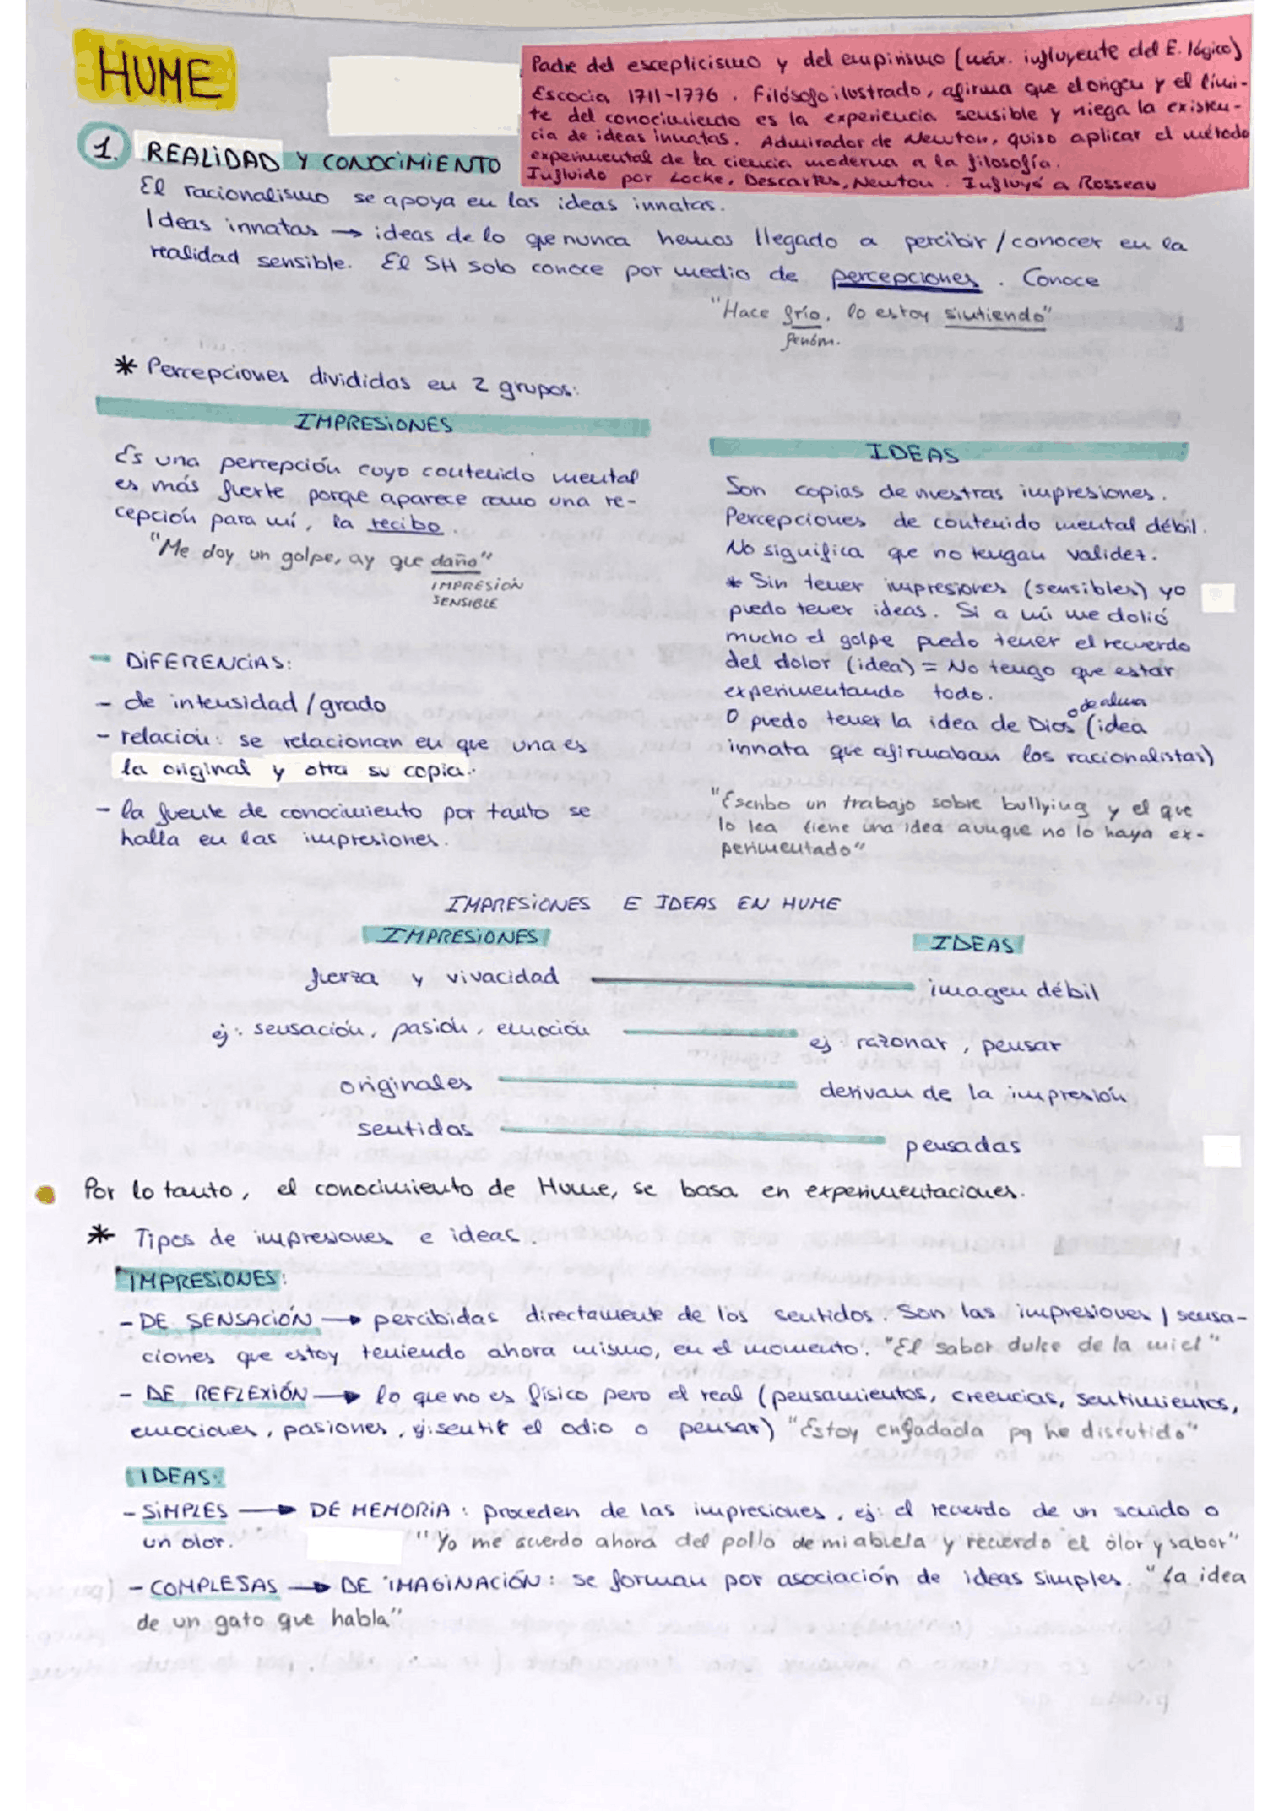 HUME
Padre del escepticismo y del empirismo (máx. influyente del E. lógico)
Escocia 1711-1776. Filósofo ilustrado, afirma que el origen y el lími-
te del conocimiento es la experiencia sensible y niega la existen-
cia de ideas innatas. Admirador de Newton, quiso aplicar el método
experimental de la ciencia moderna a la filosofía.
Influido por Locke, Descartes, Newton. Influyó a Rosseau
1. REALIDAD Y CONOCIMIENTO
El racionalismo se apoya en las ideas innatas.
Ideas innatas → ideas de lo que nunca hemos llegado a percibir/conocer en la
realidad sensible. El SH solo conoce por medio de percepciones. Conoce
"Hace frío, lo estoy sintiendo"
fenóm.
* Percepciones divididas en 2 grupos:
IMPRESIONES
Es una percepción cuyo contenido mental
es más fuerte porque aparece como una re-
cepción para mí, la recibo.
"Me doy un golpe, ay que daño"
IMPRESIÓN
SENSIBLE
- DIFERENCIAS:
- de intensidad/grado
- relación: se relacionan en que una es
la original y otra su copia.
- la fuente de conocimiento por tanto se
halla en las impresiones.
IDEAS
Son copias de nuestras impresiones.
Percepciones de contenido mental débil.
No significa que no tengan validez.
* Sin tener impresiones (sensibles) yo
puedo tener ideas. Si a mí me dolió
mucho el golpe puedo tener el recuerdo
del dolor (idea) = No tengo que estar
experimentando todo.
o de alma
O puedo tener la idea de Dios (idea
innata que afirmaban los racionalistas)
"Escribo un trabajo sobre bullying y el que
lo lea tiene una idea aunque no lo haya ex-
perimentado"
IMPRESIONES E IDEAS EN HUME
IMPRESIONES IDEAS
fuerza y vivacidad imagen débil
ej: sensación, pasión, emoción ej: razonar, pensar
originales derivan de la impresión
sentidas pensadas
Por lo tanto, el conocimiento de Hume, se basa en experimentaciones.
* Tipos de impresiones e ideas.
IMPRESIONES:
- DE SENSACIÓN → percibidas directamente de los sentidos. Son las impresiones / sensa-
ciones que estoy teniendo ahora mismo, en el momento. "El sabor dulce de la miel"
- DE REFLEXIÓN → lo que no es físico pero el real (pensamientos, creencias, sentimientos,
emociones, pasiones, ej: sentir el odio o pensar) "Estoy enfadada pq he discutido"
IDEAS:
- SIMPLES → DE MEMORIA: proceden de las impresiones, ej: el recuerdo de un sonido o
un olor. "Yo me acuerdo ahora del pollo de mi abuela y recuerdo el olor y sabor"
- COMPLESAS → DE IMAGINACIÓN: se forman por asociación de ideas simples. "La idea
de un gato que habla"